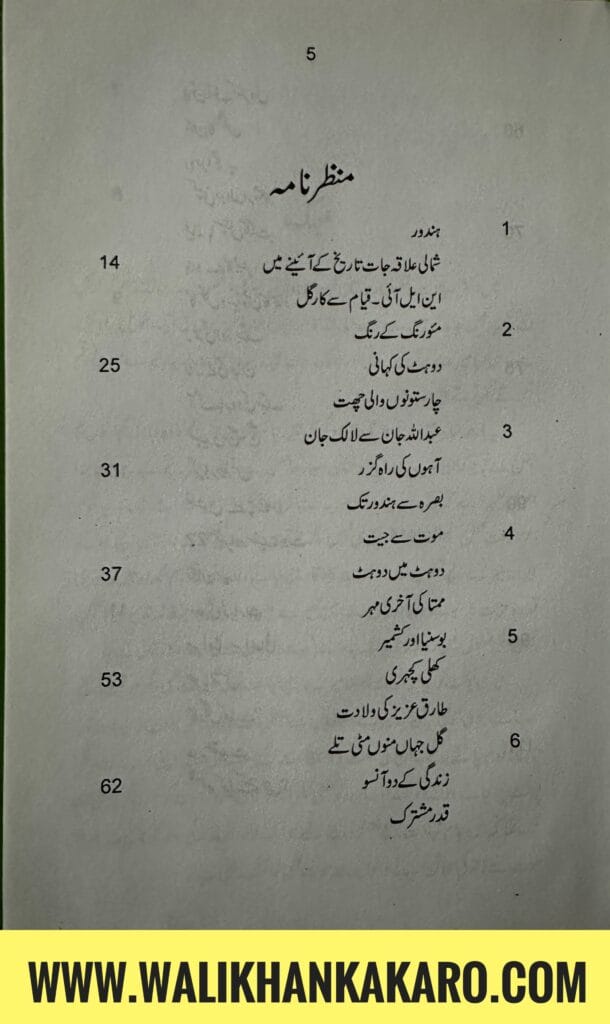 5
منظر نامہ
1 ہندور
شمالی علاقہ جات تاریخ کے آئینے میں 14
این ایل آئی۔ قیام سے کارگل
2 مئورنگ کے رنگ
دوہٹ کی کہانی 25
چار ستونوں والی چھت
3 عبداللہ جان سے لالک جان
آہوں کی راہ گزر 31
بصرہ سے ہندور تک
4 موت سے جیت
دوہٹ میں دوہٹ 37
ممتا کی آخری مہر
5 بوسنیا اور کشمیر
کھلی کچہری 53
طارق عزیز کی ولادت
6 گل جہاں منوں مٹی تلے
زندگی کے دو آنسو 62
قدر مشترک
WWW.WALIKHANKAKARO.COM